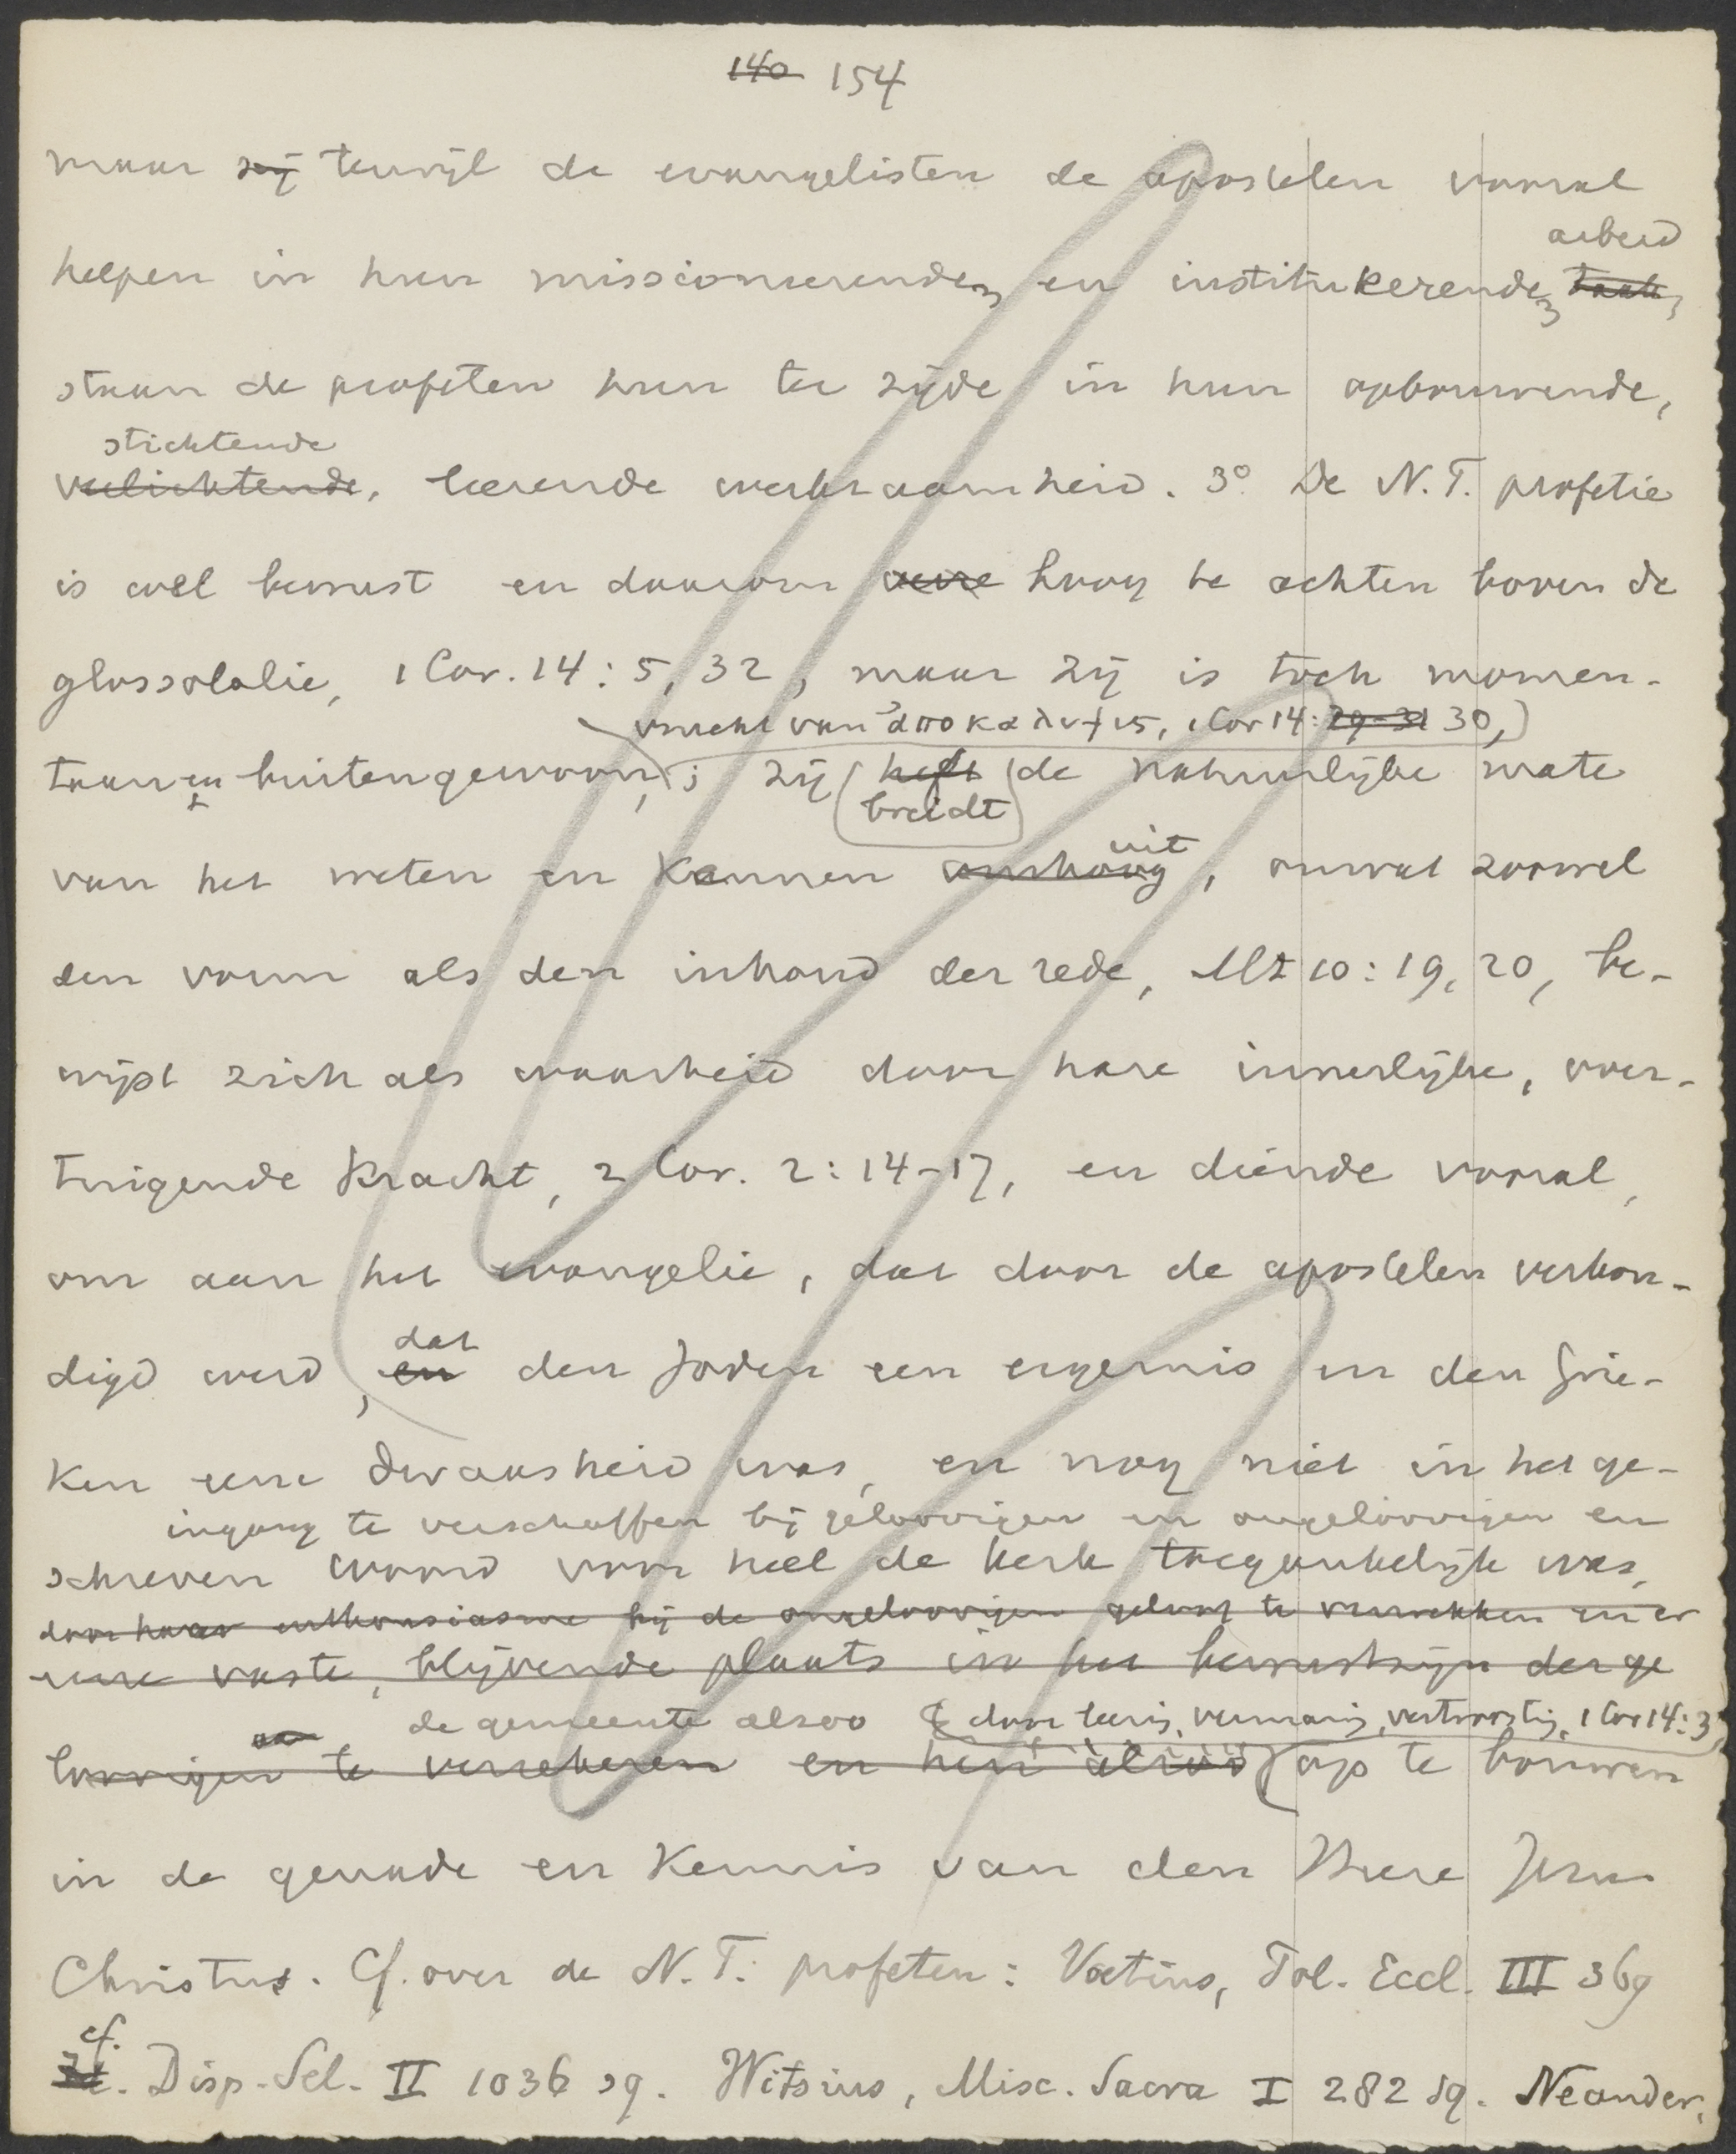 140 154
maar zij terwijl de evangelisten de apostelen vooral
arbeid
helpen in hun missioneerenden en institueerenden taak,
staan de profeten hun ter zijde in hun opbouwende,
stichtende
verlichtende, leerende werkzaamheid. 3° De N.T. profetie
is wel bewust en daarom verre hoog te achten boven de
glossolalie, 1 Cor. 14:5, 32, maar zij is toch momen-
vrucht van ἀποκαλυψις, 1 Cor 14: 29-31 30,
taan en buitengewoon, ; zij heft de natuurlijke mate
breidt
uit
van het weten en kennen omhoog, omvat zoowel
den vorm als den inhoud der rede, Mt 10:19, 20, be-
wijst zich als waarheid door hare innerlijke, over-
tuigende kracht, 2 Cor. 2:14-17, en diende vooral,
om aan het evangelie, dat door de apostelen verkon-
dat
digd werd, en den Joden een ergernis en den Grie-
ken eene dwaasheid was, en nog niet in het ge-
ingang te verschaffen bij geloovigen en ongeloovigen en
schreven woord voor heel de kerk toegankelijk was,
door haar enthousiasme bij de ongeloovigen geloof te verwekken en er
eene vaste, blijvende plaats in het bewustzijn der ge
de gemeente alzoo door leering, vermaning, vertroosting, 1 Cor 14:3
loovigen te verzekeren en hen alzoo op te bouwen
in de genade en kennis van den Heere Jezus
Christus. Cf. over de N.T. profeten: Voetius, Pol. Eccl. III 369
cf.
Id. Disp. Sel. II 1036 sq. Witsius, Misc. Sacra I 282 sq. Neander,